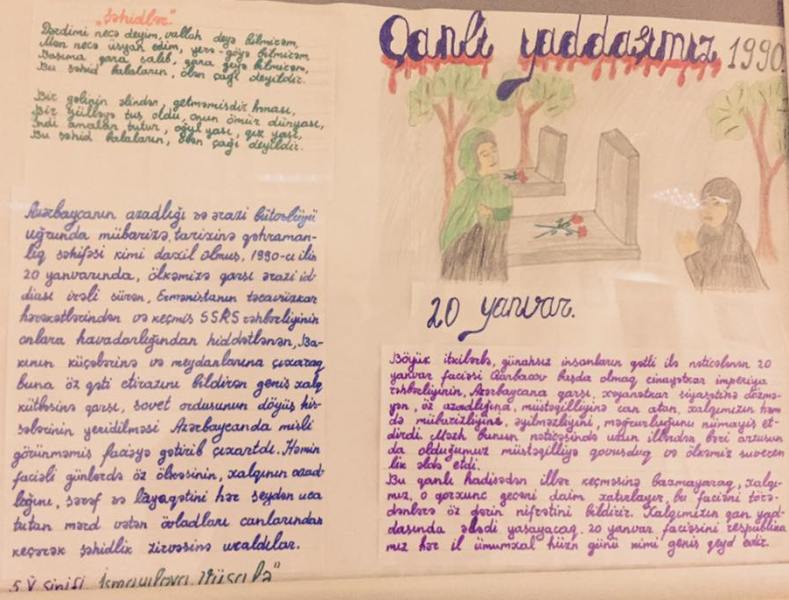 "Şəhidlər"
Dərdimi necə deyim, vallah deyə bilmirəm,
Mən necə üsyan edim, yerə-göyə bilmirəm,
Başıma qara salıb, qara geyə bilmirəm,
Bu şəhid balaların, ölən çağı deyildir.
Bir gəlinin əlindən, getməmişdir hənası,
Bir gülləyə tuş oldu, onun ömür dünyası,
İndi analar tutur, oğul yası, qız yası,
Bu şəhid balaların, ölən çağı deyildir.
Azərbaycanın azadlığı və ərazi bütövlüyü
uğrunda mübarizə tarixinə qəhraman-
lıq səhifəsi kimi daxil olmuş, 1990-cı ilin
20 yanvarında, ölkəmizə qarşı ərazi id-
diası irəli sürən, Ermənistanın təcavüzkar
hərəkətlərindən və keçmiş SSRİ rəhbərliyinin
onlara havadarlığından hiddətlənən, Ba-
kının küçələrinə və meydanlarına çıxaraq
buna öz qəti etirazını bildirən geniş xalq
kütləsinə qarşı, sovet ordusunun döyüş his-
sələrinin yeridilməsi Azərbaycanda misli
görünməmiş faciəyə gətirib çıxartdı. Həmin
faciəli günlərdə öz ölkəsinin, xalqının azad-
lığını, şərəf və ləyaqətini hər şeydən uca
tutan mərd vətən övladları canlarından
keçərək şəhidlik zirvəsinə ucaldılar.
5 V sinifi İsmayılova Vüsalə"
Qanlı yaddaşımız 1990.
20 yanvar.
Böyük itkilərlə, günahsız insanların qətli ilə nəticələnən 20
yanvar faciəsi Qarbaçov başda olmaq, cinayətkar imperiya
rəhbərliyinin, Azərbaycana qarşı, xəyanətkar siyasətinə dözmə-
yən, öz azadlığına, müstəqilliyinə can atan, xalqımızın həm
də mübarizliyini, əyilməzliyini, məğrurluğunu nümayiş et-
dirdi. Məhz bunun nəticəsində uzun illərdən bəri arzusun
da olduğumuz müstəqilliyə qovuşduq və ölkəmiz suveren
lik əldə etdi.
Bu qanlı hadisədən illər keçməsinə baxmayaraq, xalqı-
mız, o qorxunc gecəni daim xatırlayır, bu faciəni törə-
dənlərə öz dərin nifrətini bildirir. Xalqımızın qan yad-
daşında əbədi yaşayacaq. 20 yanvar faciəsini respublika
mız hər il ümumxal hüzn günü kimi geniş qeyd edir.